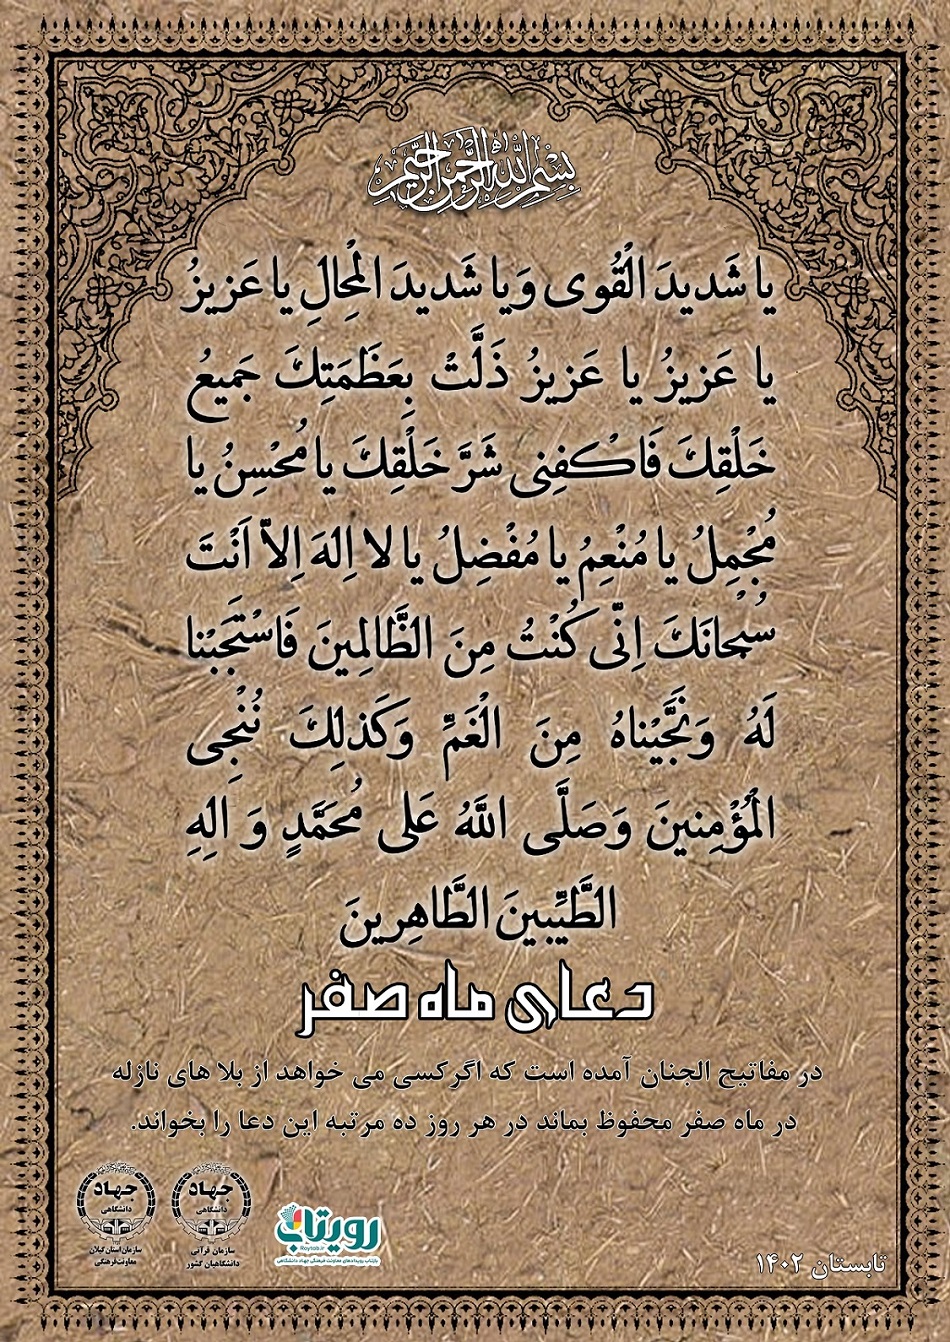 بِسْمِ اللهِ الرَّحْمنِ الرَّحِيمِ
يا شَديدَ الْقُوى وَيا شَديدَ الْمِحالِ يا عَزيزُ
يا عَزيزُ يا عَزيزُ ذَلَّتْ بِعَظَمَتِكَ جَميعُ
خَلْقِكَ فَاكْفِنى شَرَّ خَلْقِكَ يا مُحْسِنُ يا
مُجْمِلُ يا مُنْعِمُ يا مُفْضِلُ يا لا اِلهَ اِلاّ اَنْتَ
سُبْحانَكَ اِنّى كُنْتُ مِنَ الظّالِمينَ فَاسْتَجَبْنا
لَهُ وَنَجَّيْناهُ مِنَ الْغَمِّ وَكَذلِكَ نُنْجِى
الْمُؤْمِنينَ وَصَلَّى اللَّهُ عَلى مُحَمَّدٍ وَ الِهِ
الطَّيِّبينَ الطَّاهِرينَ
دعای ماه صفر
در مفاتیح الجنان آمده است که اگر کسی می خواهد از بلا های نازله
در ماه صفر محفوظ بماند در هر روز ده مرتبه این دعا را بخواند.
جهاد
دانشگاهی
سازمان قرآنی
دانشگاهیان کشور
جهاد
دانشگاهی
سازمان استان گیلان
معاونت فرهنگی
رویتاب
Roytab.ir
بازتاب رویدادهای معاونت فرهنگی جهاد دانشگاهی
تابستان ۱۴۰۲